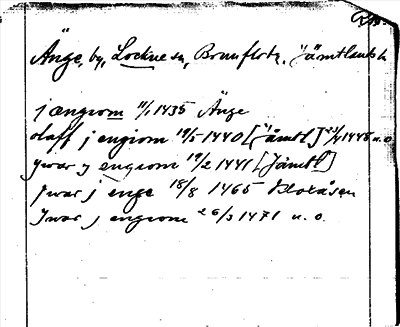 Änge, by, Lockne sn, Brunflo tg, Jämtlands l.
j ængiom 11/1 1435 Änge
olaff j engiom 19/5 1440 [Jämtl] 23/4 1448 u.o.
jwar j engiom 19/2 1441 [Jämtl]
Jwar j enge 18/8 1465
Jwar j engiom 26/3 1471 u. o.